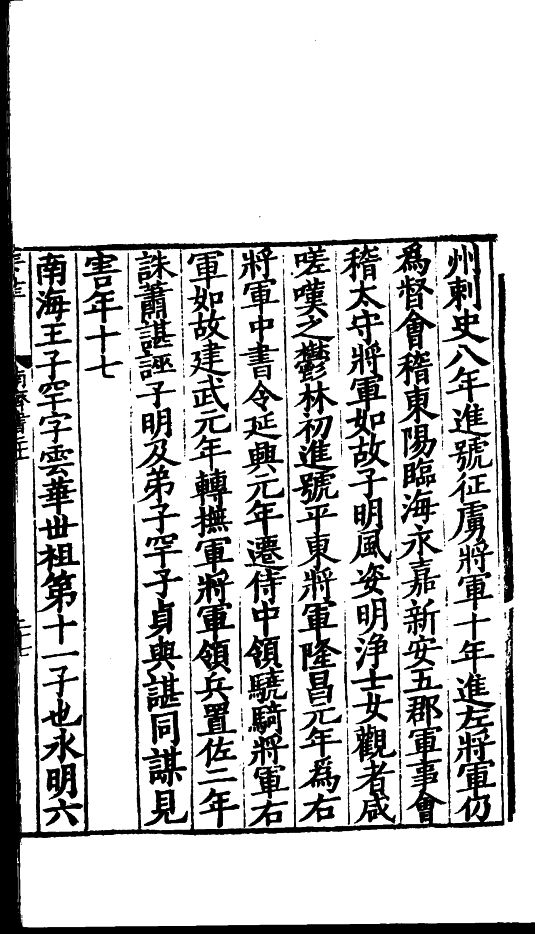 州刺史八年進號征虜將軍十年進左將軍仍
爲督會稽東陽臨海永嘉新安五郡軍事會
稽太守將軍如故子明風姿明淨士女觀者咸
嗟嘆之鬱林初進號平東將軍隆昌元年爲右
將軍中書令延興元年遷侍中領驍騎將軍右
軍如故建武元年轉撫軍將軍領兵置佐二年
誅蕭諶誣子明及弟子罕子貞與諶同謀見
害年十七
南海王子罕字雲華丗祖第十一子也永明六